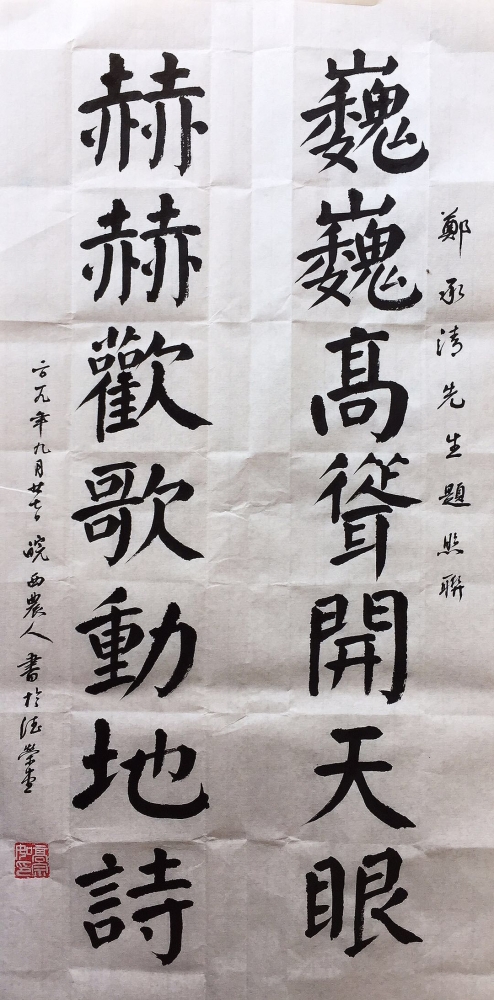 鄭承清先生題照聯
巍巍髙聳開天眼
赫赫歡歌動地詩
年九月廿七日皖西農人書於德榮堂